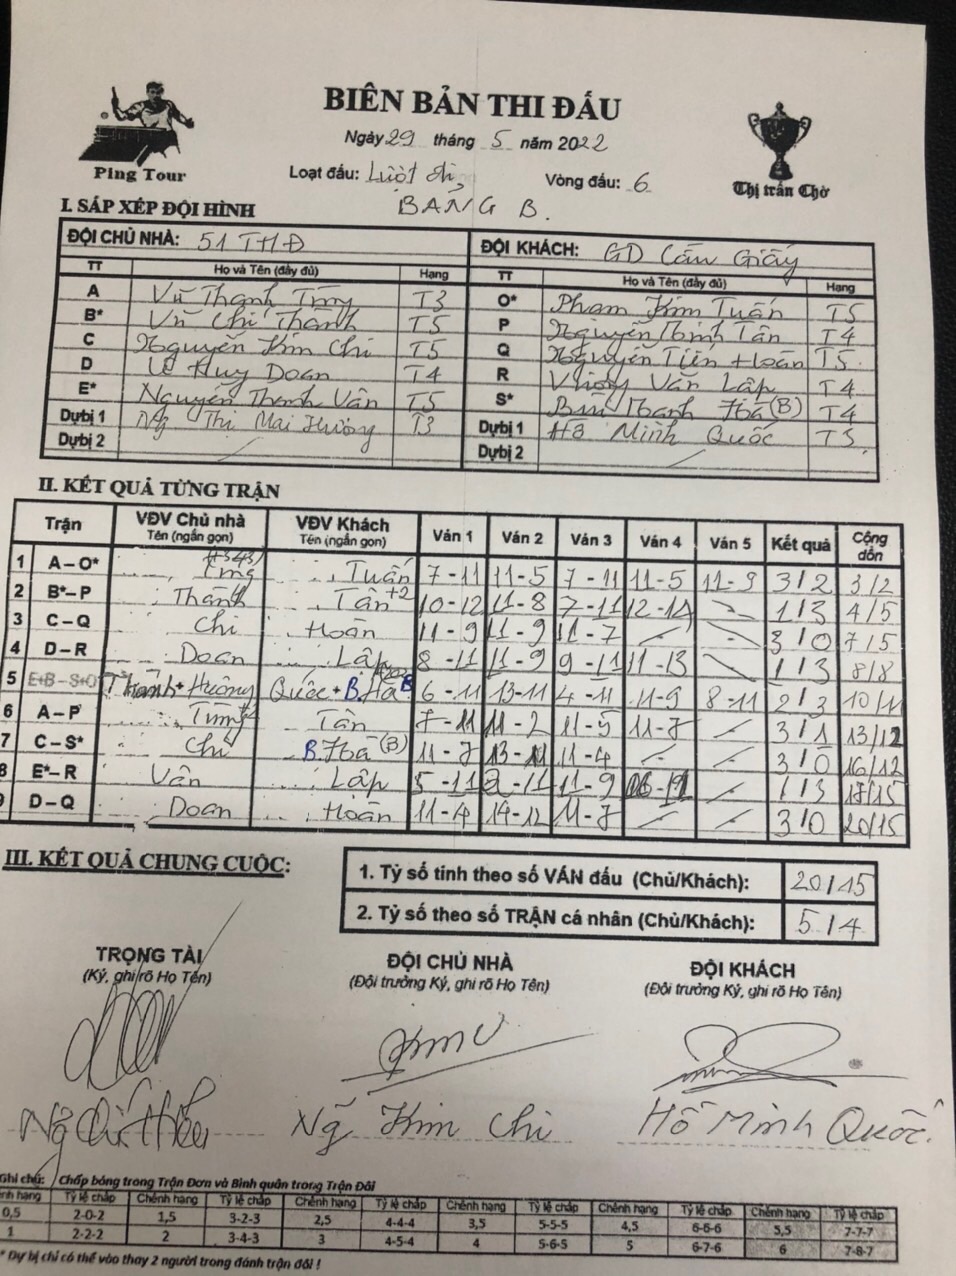 BIÊN BẢN THI ĐẤU
Ngày 29 tháng 5 năm 2022
Ping Tour
Loạt đấu: Lượt đi, Vòng đấu: 6
Thị trấn Chờ
BẢNG B.
I. SẮP XẾP ĐỘI HÌNH
ĐỘI CHỦ NHÀ: 51 THĐ ĐỘI KHÁCH: GD Cầu Giấy
TT Họ và Tên (đầy đủ) Hạng TT Họ và Tên (đầy đủ) Hạng
A Vũ Thanh Tùng T3 O* Phạm Kim Tuấn T5
B* Vũ Chí Thành T5 P Nguyễn Minh Tân T4
C Nguyễn Kim Chi T5 Q Nguyễn Tiến Hoàn T5
D Lê Huy Doan T4 R Vương Văn Lập T4
E* Nguyễn Thanh Vân T5 S* Bùi Thanh Hà (B) T4
Dự bị 1 Ng Thị Mai Hương T3 Dự bị 1 Hồ Minh Quốc T5
Dự bị 2 Dự bị 2
II. KẾT QUẢ TỪNG TRẬN
Trận VĐV Chủ nhà Tên (ngắn gọn) VĐV Khách Tên (ngắn gọn) Ván 1 Ván 2 Ván 3 Ván 4 Ván 5 Kết quả Cộng dồn
1 A – O* Tùng Tuấn 7-11 11-5 7-11 11-5 11-9 3/2 3/2
2 B* – P Thành Tân +2 10-12 11-8 7-11 12-14 1/3 4/5
3 C – Q Chi Hoàn 11-9 11-9 11-7 3/0 7/5
4 D – R Doan Lập 8-11 11-9 9-11 11-13 1/3 8/8
5 E+B – S+O Thành + Hương Quốc + B.Hà B 6-11 13-11 4-11 11-9 8-11 2/3 10/11
6 A – P Tùng Tân 7-11 11-2 11-5 11-7 3/1 13/12
7 C – S* Chi B.Hà (B) 11-7 13-11 11-4 3/0 16/12
8 E* – R Vân Lập 5-11 2-11 11-9 1/3 17/15
9 D – Q Doan Hoàn 11-4 14-12 11-7 3/0 20/15
III. KẾT QUẢ CHUNG CUỘC:
1. Tỷ số tính theo số VÁN đấu (Chủ/Khách): 20/15
2. Tỷ số theo số TRẬN cá nhân (Chủ/Khách): 5/4
TRỌNG TÀI ĐỘI CHỦ NHÀ ĐỘI KHÁCH
(Ký, ghi rõ Họ Tên) (Đội trưởng Ký, ghi rõ Họ Tên) (Đội trưởng Ký, ghi rõ Họ Tên)
Ng Kim Chi Hồ Minh Quốc.
Ghi chú: Chấp bóng trong Trận Đơn và Bình quân trong Trận Đôi
ênh hạng Tỷ lệ chấp Chênh hạng Tỷ lệ chấp Chênh hạng Tỷ lệ chấp Chênh hạng Tỷ lệ chấp Chênh hạng Tỷ lệ chấp Chênh hạng Tỷ lệ chấp
0,5 2-0-2 1,5 3-2-3 2,5 4-4-4 3,5 5-5-5 4,5 6-6-6 5,5 7-7-7
1 2-2-2 2 3-4-3 3 4-5-4 4 5-6-5 5 6-7-6 6 7-8-7
* Dự bị chỉ có thể vào thay 2 người trong đánh trận đôi !